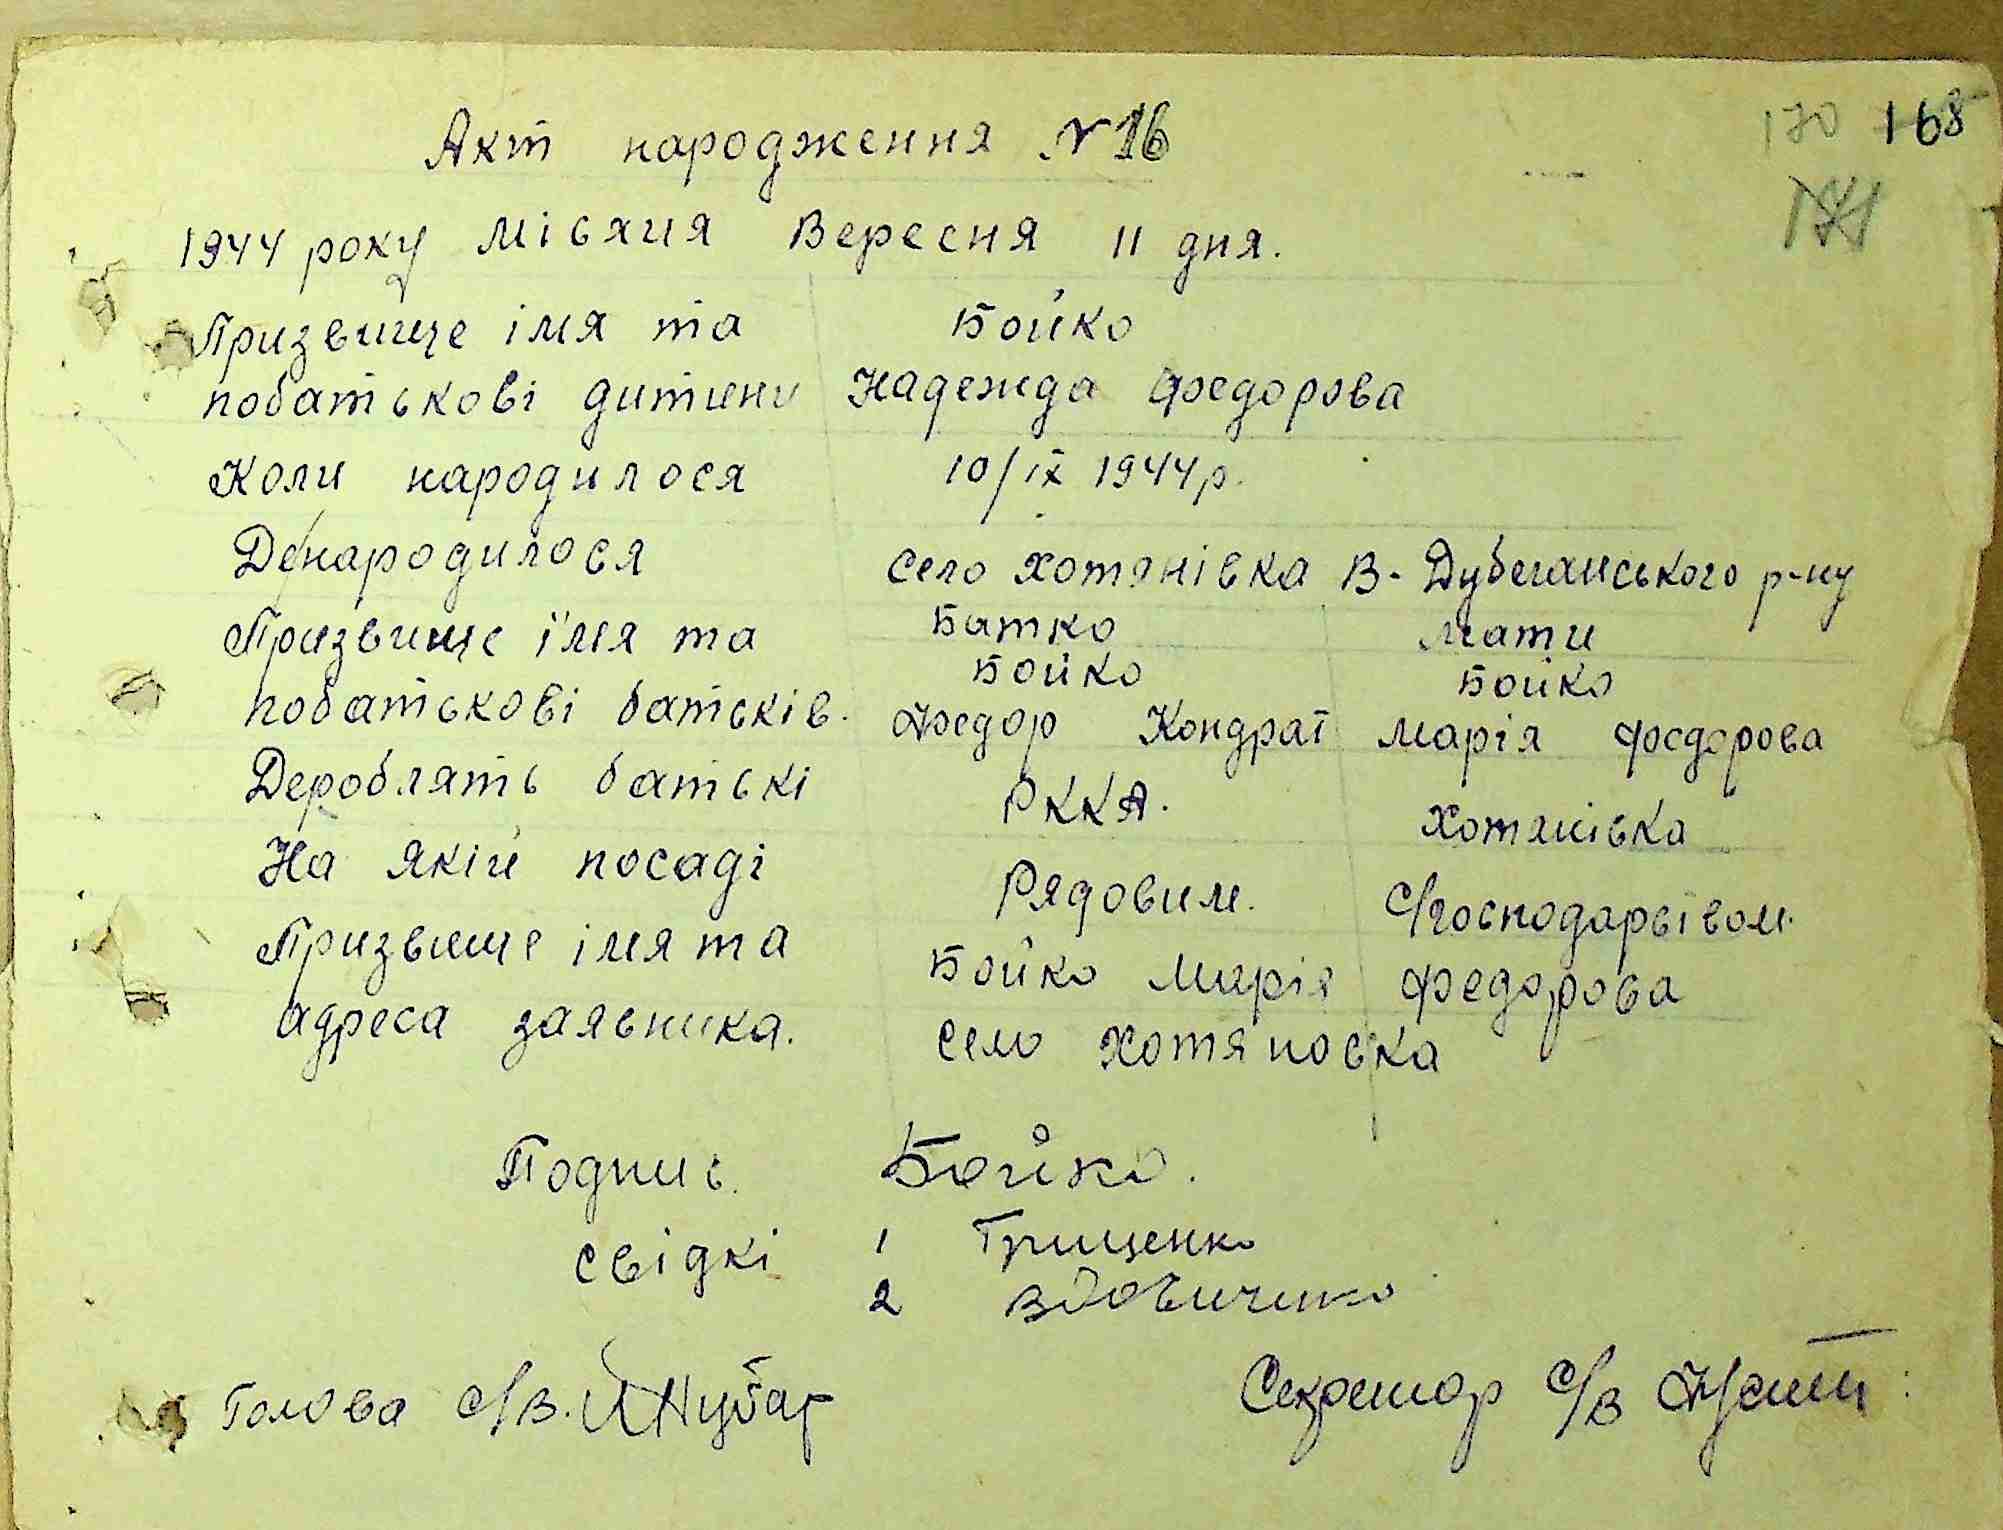 170 168
171
Акт народження N 16
1944 року місяця Вересня 11 дня.
Призвище імя та Бойко
побатькові дитини Надежда Федорова
Коли народилося 10/ІХ 1944р.
Де/народилося село Хотянівка В-Дубечанського р-ну
Призвище імя та Батко мати
Бойко Бойко
побатькові батьків. Федор Кондрат Марія Федорова
Дероблять батькі РККА. Хотянівка
На якій посаді Рядовим. с/господарьівом.
Призвище імя та Бойко Марія Федорова
адреса заявника. село Хотяновка
Подпись. Бойко.
свідкі 1 Грищенко
2 Вдовиченко
Голова с/в.
Секретар с/в